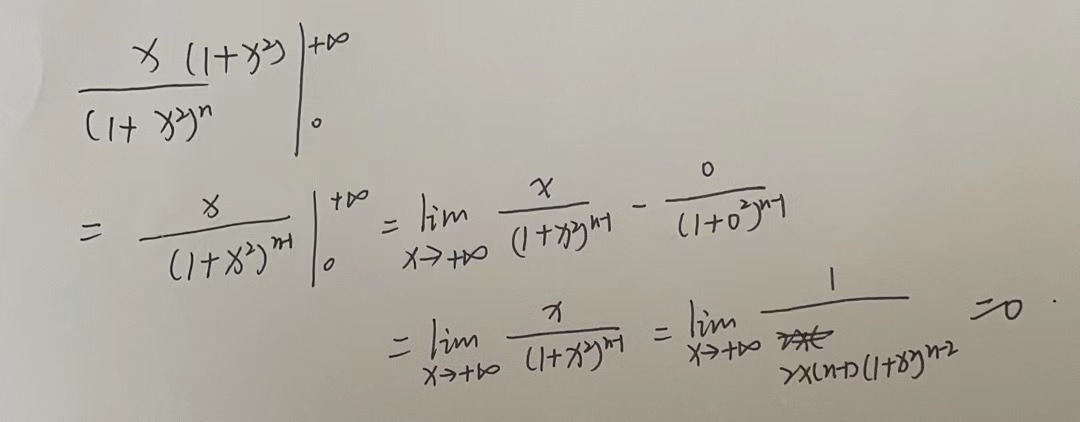 x (1+x²) / (1+x²)ⁿ |₀^{+∞}
= x / (1+x²)^{n-1} |₀^{+∞} = lim_{x→+∞} x / (1+x²)^{n-1} - 0 / (1+0²)^{n-1}
= lim_{x→+∞} x / (1+x²)^{n-1} = lim_{x→+∞} 1 / 2x(n-1)(1+x²)^{n-2} =0.